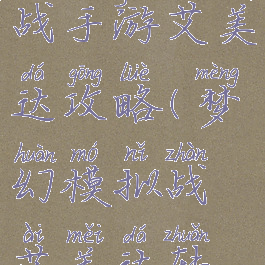 战手游艾美
dá gōng lüè mèng
达攻略(梦
huàn mó nǐ zhàn
幻模拟战
ài měi dá zhuǎn